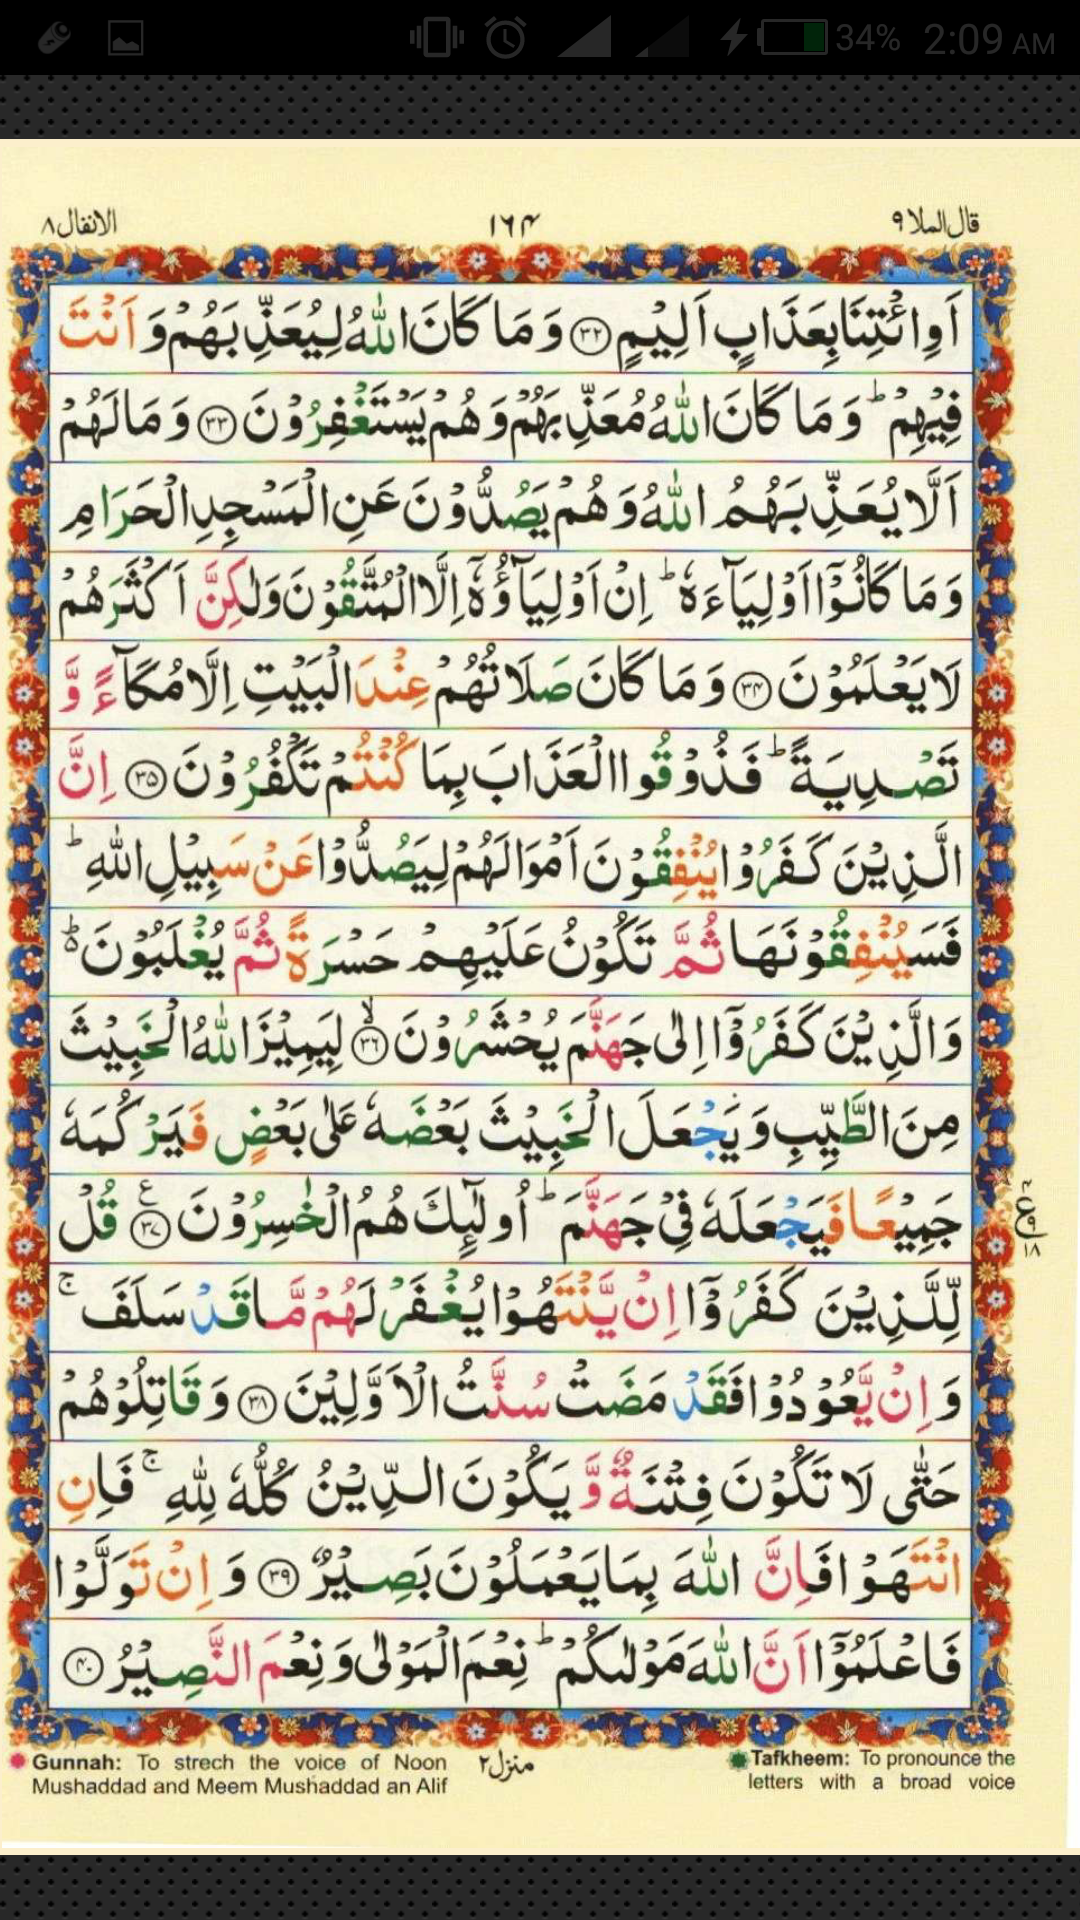 34% 2:09 AM
قال الملا ٩ ١٦۴ الانفال ٨
اَوِ ائْتِنَا بِعَذَابٍ اَلِيْمٍ ﴿٣٢﴾ وَ مَا كَانَ اللّٰهُ لِيُعَذِّبَهُمْ وَ اَنْتَ
فِيْهِمْ ؕ وَ مَا كَانَ اللّٰهُ مُعَذِّبَهُمْ وَ هُمْ يَسْتَغْفِرُوْنَ ﴿٣٣﴾ وَ مَا لَهُمْ
اَلَّا يُعَذِّبَهُمُ اللّٰهُ وَ هُمْ يَصُدُّوْنَ عَنِ الْمَسْجِدِ الْحَرَامِ
وَ مَا كَانُوْۤا اَوْلِيَآءَهٗ ؕ اِنْ اَوْلِيَآؤُهٗۤ اِلَّا الْمُتَّقُوْنَ وَلٰكِنَّ اَكْثَرَهُمْ
لَا يَعْلَمُوْنَ ﴿٣۴﴾ وَ مَا كَانَ صَلَاتُهُمْ عِنْدَ الْبَيْتِ اِلَّا مُكَآءً وَّ
تَصْدِيَةً ؕ فَذُوْقُوا الْعَذَابَ بِمَا كُنْتُمْ تَكْفُرُوْنَ ﴿٣٥﴾ اِنَّ
الَّذِيْنَ كَفَرُوْا يُنْفِقُوْنَ اَمْوَالَهُمْ لِيَصُدُّوْا عَنْ سَبِيْلِ اللّٰهِ ؕ
فَسَيُنْفِقُوْنَهَا ثُمَّ تَكُوْنُ عَلَيْهِمْ حَسْرَةً ثُمَّ يُغْلَبُوْنَ ۬ؕ
وَالَّذِيْنَ كَفَرُوْۤا اِلٰى جَهَنَّمَ يُحْشَرُوْنَ ﴿٣٦﴾ۙ لِيَمِيْزَ اللّٰهُ الْخَبِيْثَ
مِنَ الطَّيِّبِ وَ يَجْعَلَ الْخَبِيْثَ بَعْضَهٗ عَلٰى بَعْضٍ فَيَرْكُمَهٗ
جَمِيْعًا فَيَجْعَلَهٗ فِيْ جَهَنَّمَ ؕ اُولٰٓئِكَ هُمُ الْخٰسِرُوْنَ ﴿٣٧﴾ع قُلْ
لِّلَّذِيْنَ كَفَرُوْۤا اِنْ يَّنْتَهُوْا يُغْفَرْ لَهُمْ مَّا قَدْ سَلَفَ ۚ
وَ اِنْ يَّعُوْدُوْا فَقَدْ مَضَتْ سُنَّتُ الْاَوَّلِيْنَ ﴿٣٨﴾ وَ قَاتِلُوْهُمْ
حَتّٰى لَا تَكُوْنَ فِتْنَةٌ وَّ يَكُوْنَ الدِّيْنُ كُلُّهٗ لِلّٰهِ ۚ فَاِنِ
انْتَهَوْا فَاِنَّ اللّٰهَ بِمَا يَعْمَلُوْنَ بَصِيْرٌ ﴿٣٩﴾ وَ اِنْ تَوَلَّوْا
فَاعْلَمُوْۤا اَنَّ اللّٰهَ مَوْلٰىكُمْ ؕ نِعْمَ الْمَوْلٰى وَ نِعْمَ النَّصِيْرُ ﴿۴٠﴾
Gunnah: To strech the voice of Noon
Mushaddad and Meem Mushaddad an Alif
منزل ٢
Tafkheem: To pronounce the
letters with a broad voice